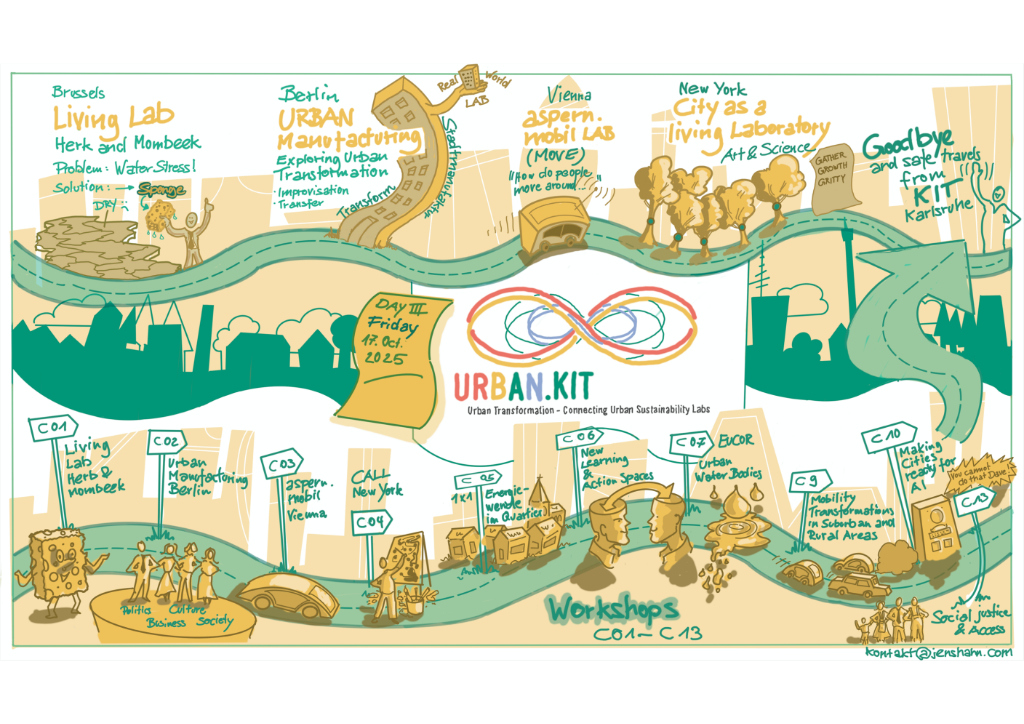 Brussels
Living Lab
Herk and Mombeek
Problem: Water Stress!
Solution: → Sponge
DRY
Berlin
URBAN
Manufacturing
Exploring Urban
Transformation
· Improvisation
· Transfer
Transform
Stadtmanufaktur
Real World
LAB
Vienna
aspern.
mobil LAB
(MOVE)
"How do people
move around..."
New York
City as a
living Laboratory
Art & Science
GATHER
GROWTH
GRITTY
Goodbye
and safe travels
from
KIT
Karlsruhe
DAY III
Friday
17. Oct.
2025
URBAN.KIT
Urban Transformation – Connecting Urban Sustainability Labs
C01
Living
Lab
Herb &
Mombeek
C02
Urban
Manufacturing
Berlin
Politics
Culture
Business
Society
C03
aspern.
mobil
Vienna
CALL
New York
C04
C05
1x1
Energie-
wende
im Quartier
C06
New
Learning
&
Action Spaces
C07
EUCOR
Urban
Water Bodies
C9
Mobility
Transformations
in Suburban and
Rural Areas
C10
Making
Cities
ready for
AI
You cannot
do that Dave!
C13
Social justice
& Access
Workshops
C01 – C13
kontakt@jenshahn.com